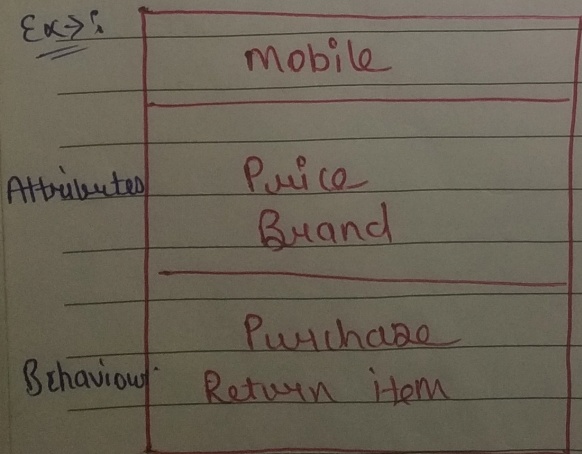 Ex→:
Mobile
Attributes
Price
Brand
Purchase
Behaviour
Return item